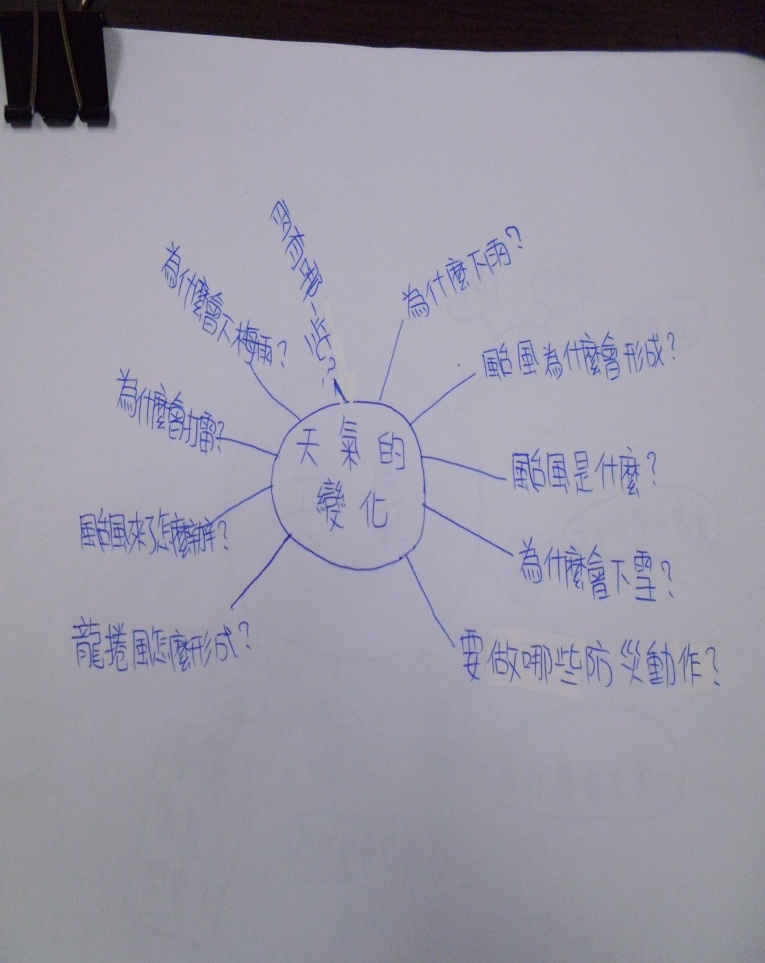 天氣的
變化
雨有哪一些?
為什麼下雨?
颱風為什麼會形成?
颱風是什麼?
為什麼會下雪?
要做哪些防災動作?
龍捲風怎麼形成?
颱風來了怎麼辦?
為什麼會打雷?
為什麼會下梅雨?